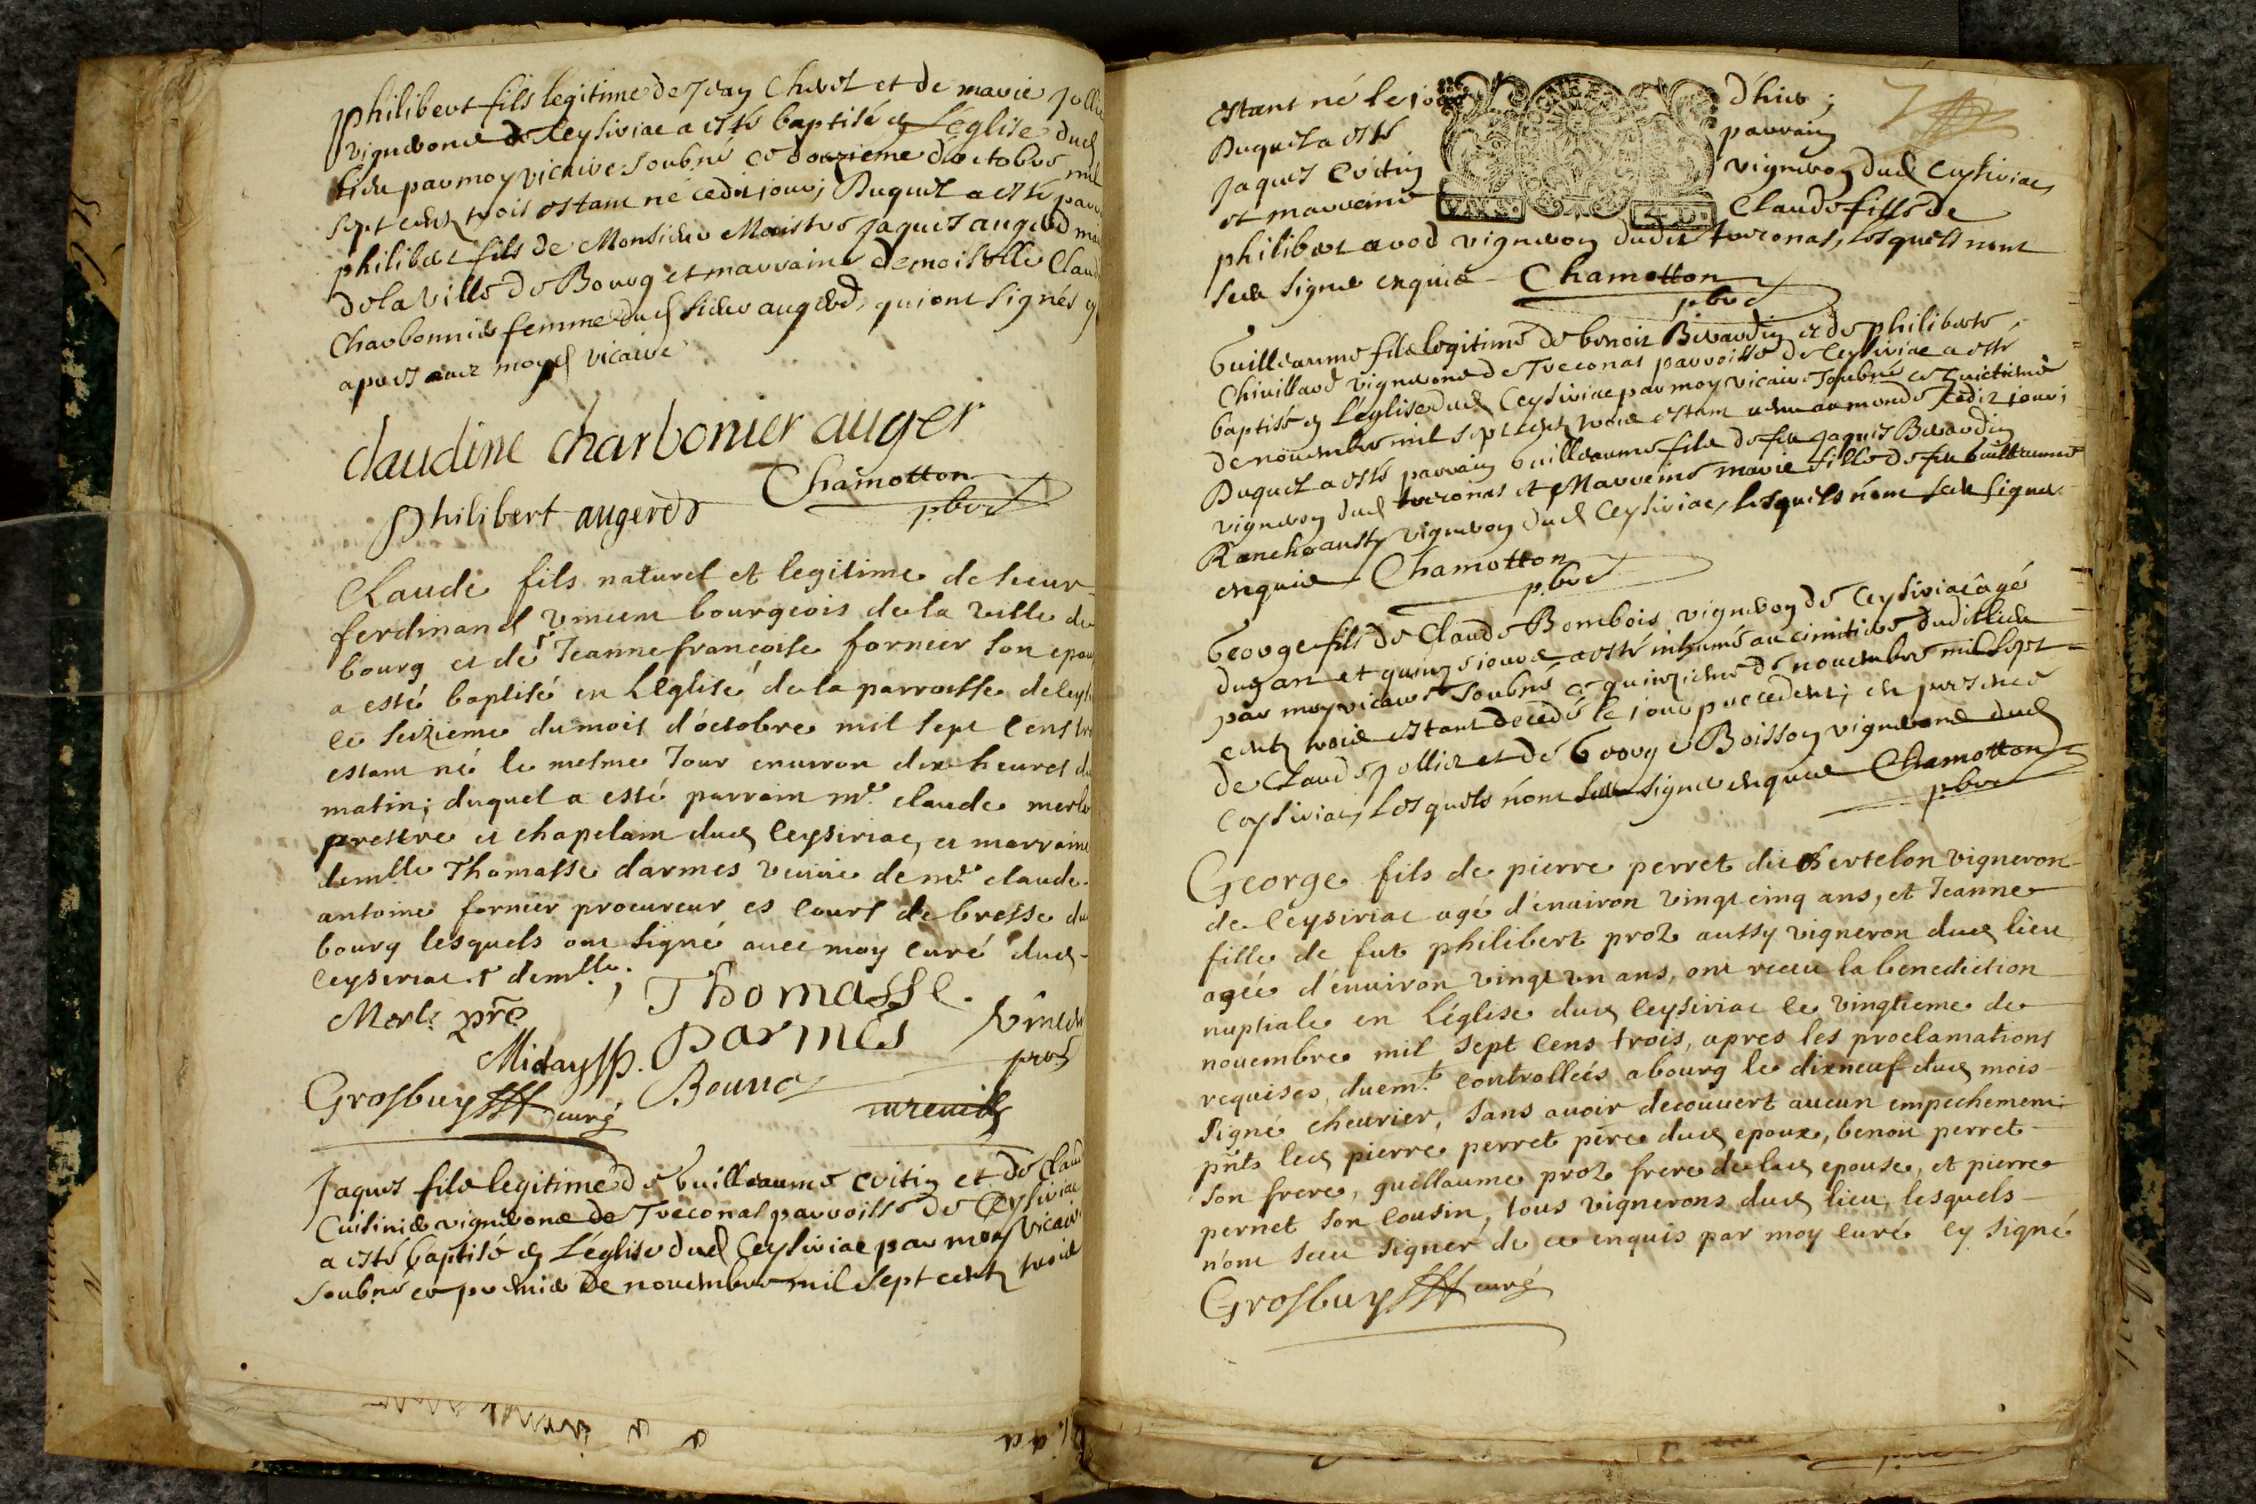 philibert fils legitime de Jean Chevet et de marie Jolle
vignerons de Ceysiriac a esté baptisé en L'église dud
lieu par moy vicaire soubné ce douzieme d'octobre mil
sept cents trois estant né cedit jour; Duquel a esté parr
philibert fils de Monsieur Maistre Jaques augerd
de la ville de Bourg et marraine demoiselle Claud
Charbonnier femme dud sieur augerd, qui ont signés
apres avec moyd vicaire
claudine charbonier auger
philibert augerd
Chamotton
pbre
Claude fils naturel et legitime de sieur
ferdinand vincent bourgeois de la ville de
bourg et de Jeanne francoise fornier son epou
a esté baptisé en L'église de la parroisse de Ceys
ce seizieme du mois d'octobre mil sept cens tro
estant né le mesme Jour environ dix heures du
matin; duquel a esté parrain mr. claude merle
prestre et chapelain dud Ceysiriac, et marraine
demlle Thomasse darmes veuve de mr claude
antoine fornier procureur es cours de bresse du
bourg lesquels ont signé avec moy curé dud
ceysiriac. demlle.
Merle pre
Thomasse
Darmes
vincent
Midaysp.
Grosbuy curé
Bouuo
Jaques fils legitime de Guilleaume Evitin et de Claud
Cuisinier vignerons de Treconas parroisse de Ceysiriac
a esté baptisé en L'église dud Ceysiriac par moy vicaire
soubné ce premier de novembre mil sept cents trois
estant né le jour d'hier;
Duquel a esté parrain
Jaques Evitin vigneron dud Ceysiriac,
et marreine Claude fille de
philibert avod vigneron dudit treconas, lesquels nont
sceu signer enquis Chamotton
pbre
Guilleaume fils legitime de benoit Berardin et de philiberte
Chivillard vignerons de Treconas parroisse de Ceysiriac a esté
baptisé en L'église dud Ceysiriac par moy vicaire soubné ce huictieme
de novembre mil sept cents trois estant venu au monde cedit jour;
Duquel a esté parrain Guilleaume fils de feu Jaques Berardin
vigneron dud treconas et Marreine marie fille de feu Guilleaume
Ranche aussy vigneron dud Ceysiriac, lesquels n'ont sceu signer
enquis Chamotton
pbre
George fils de Claude Bombois vigneron de Ceysiriac âgé
d'un an et quinze jours a esté inhumé au cimitiere dudit lieu
par moy vicaire soubné ce quinzieme de novembre mil sept
cents trois estant decedé le jour precedent; en presence
de Claude Jollier et de George Boisson vignerons dud
Ceysiriac, Lesquels n'ont sceu signer enquis Chamotton
pbre
George fils de pierre perret dit Bertelon vigneron
de Ceysiriac agé d'environ vingt cinq ans, et Jeanne
fille de fut philibert proz aussy vigneron dud lieu
agée d'environ vingt un ans, ont receu la benediction
nuptiale en L'église dud Ceysiriac ce vingtieme de
novembre mil sept cens trois, apres les proclamations
requises, duemt. controllées a bourg le dixneuf dud mois
signé chevrier, sans avoir decouvert aucun empechement
pnts led pierre perret pere dud epoux, benoit perret
son frere, guillaume proz frere de lad epouse, et pierre
pernet son cousin, tous vignerons dud lieu, lesquels
n'ont sceu signer de ce enquis par moy curé cy signé
Grosbuy curé